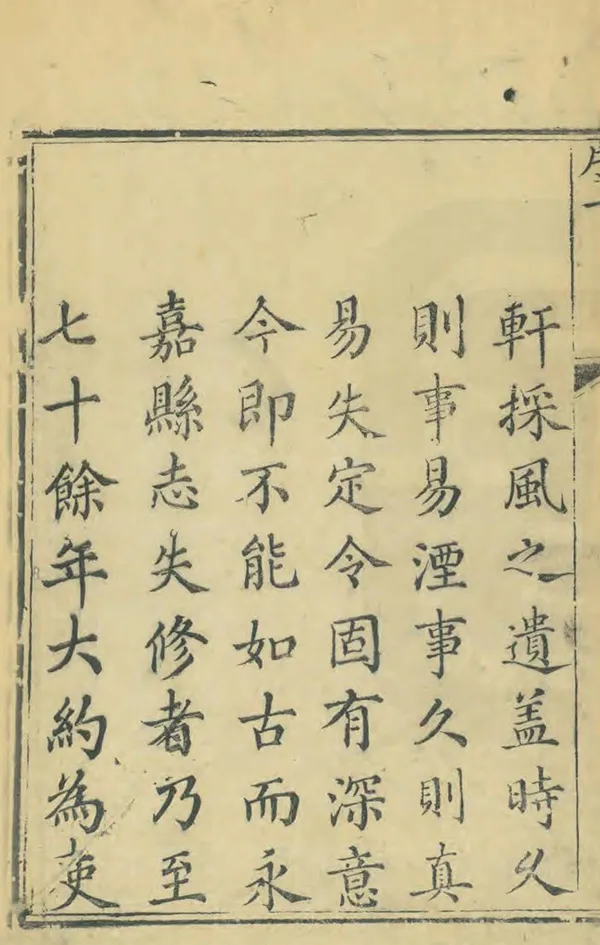 軒採風之遺盖時久
則事易湮事久則真
易失定令固有深意
今即不能如古而永
嘉縣志失修者乃至
七十餘年大約為吏